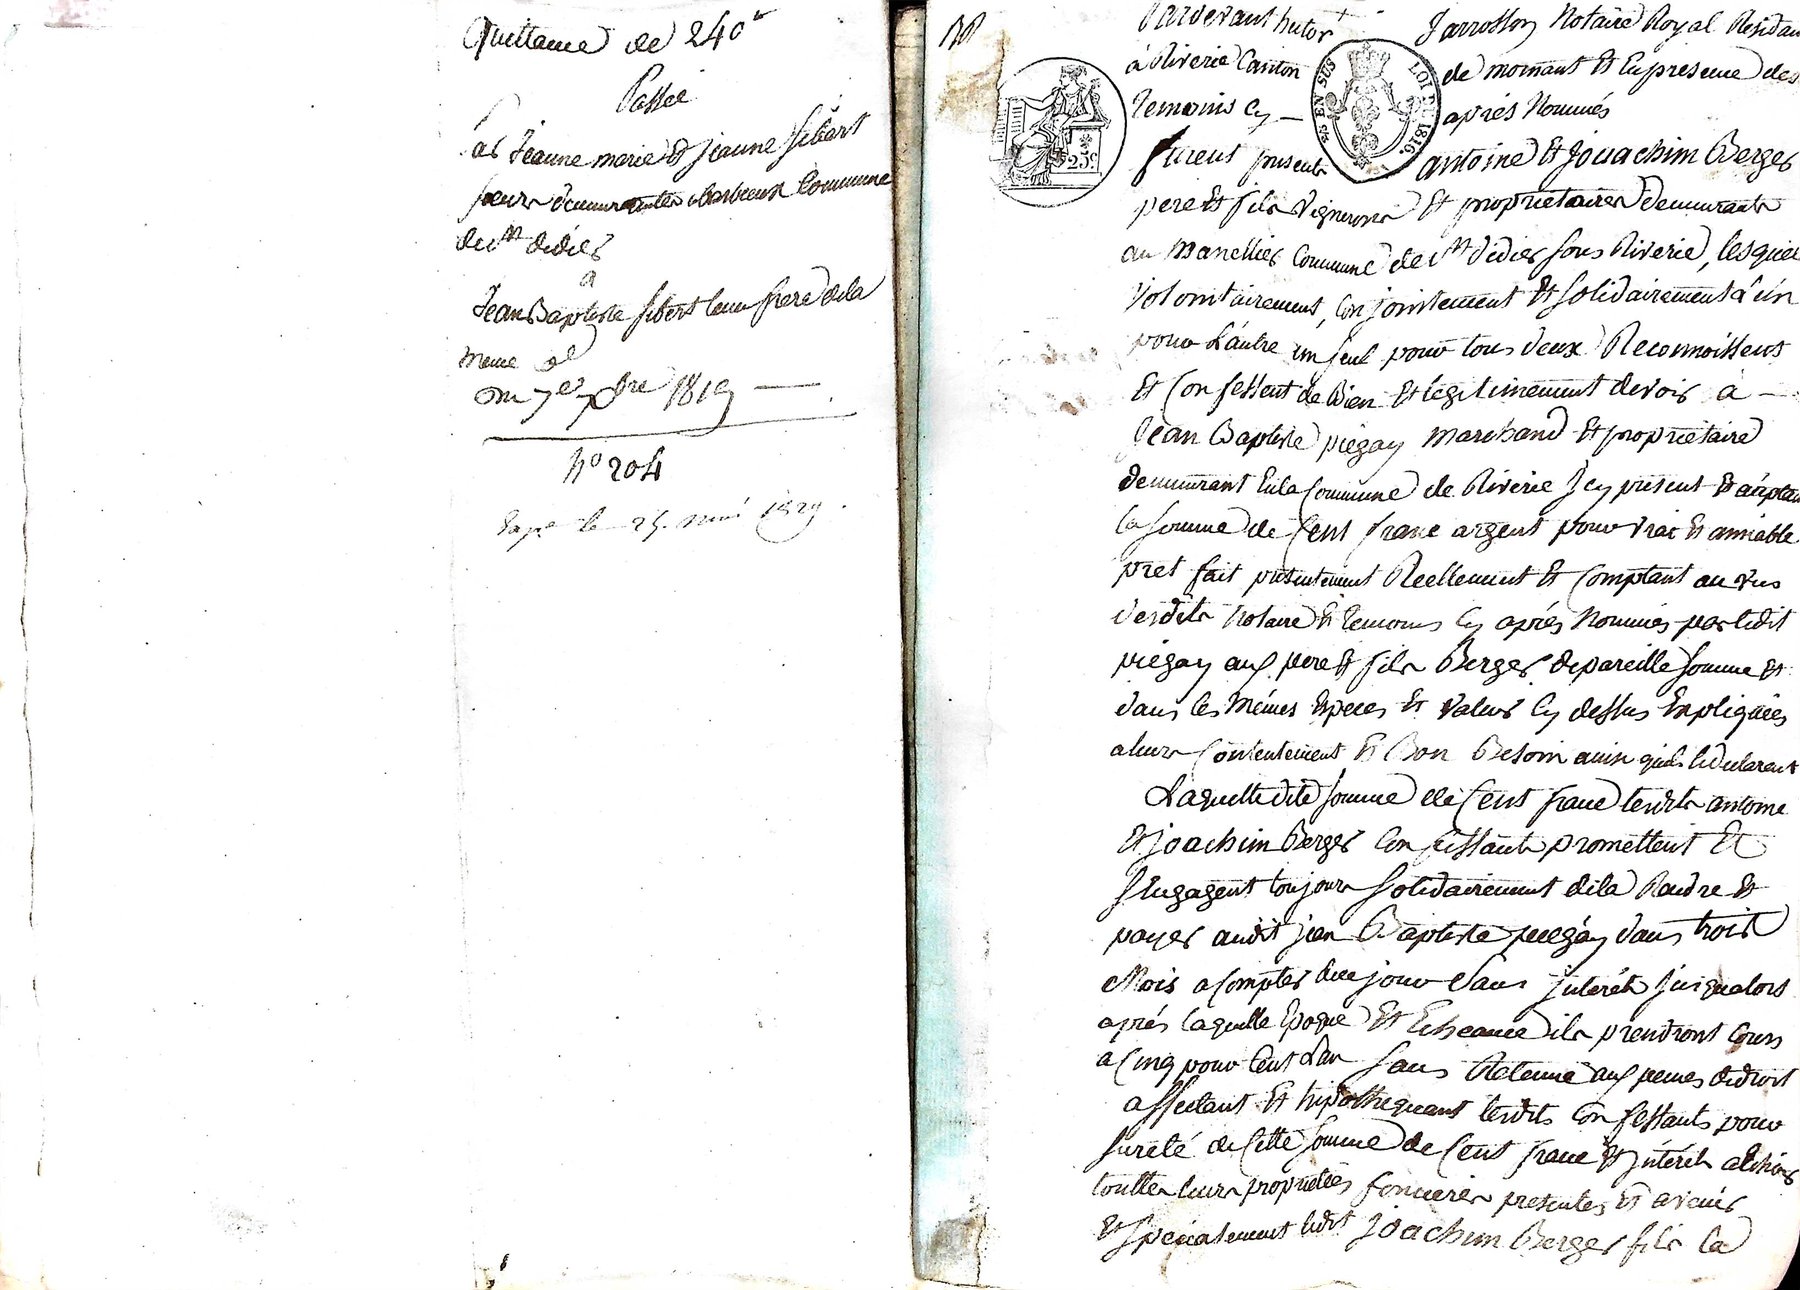 Quittance de 240#
Passée
Par Jeanne marie et jeanne sibert
sœurs demeurantes Commune
de st didier
a
Jean Baptiste sibert leur frere de la
meme
du 7e 7bre 1819
No 204
Expé le 25. mai 1829.
Pardevant hutor Jarrosson Notaire Royal Residan
à Riverie Canton de mornant Et En presence des
temoins Cy — après Nommés
furent presents antoine Et Jouachim Berger
pere Et fils vignerons Et proprietaires demeurants
au Manellier Commune de st Didier sous Riverie, lesquel
volontairement, Conjointement Et Solidairement d'un
pour L'autre un seul pour tous deux Reconnoissent
Et Confessent de Bien Et legitimement devoir à —
Jean Baptiste piegay Marchand Et propriétaire
demeurant En la Commune de Riverie Jcy present Et acceptan
la somme de Cent franc argent pour vrai Et amiable
pret fait presentement Reellement Et Comptant au vus
desdits Notaire Et temoins Cy après Nommés par ledit
piegay aux pere Et fils Berger de pareille somme Et
dans les Mémes Especes Et valeur Cy dessus Expliquées
a leur Contentement Et Bon Besoin ainsi quils le declarent
Laquelle dite somme de Cent franc lesdits antoine
Et joachim Berger Confessants promettent Et
s'Engagent toujours Solidairement de la Randre Et
payer audit jean Baptiste piegay dans trois
Mois a Compter de ce jour Sans jnterêts jusqualors
après laquelle Epoque Et Echeance ils prendront Cours
a Cinq pour Cent L'an Sans Retenue aux peines de droit
affectant Et hipothequant lesdits Confessants pour
sureté de Cette somme de Cent franc Et jntérêts a Echoir
touttes leurs proprietées foncieres presentes Et avenir
Et specialement ledit Joachim Berger fils la
EN SUS
LOI DE 1816.
25c